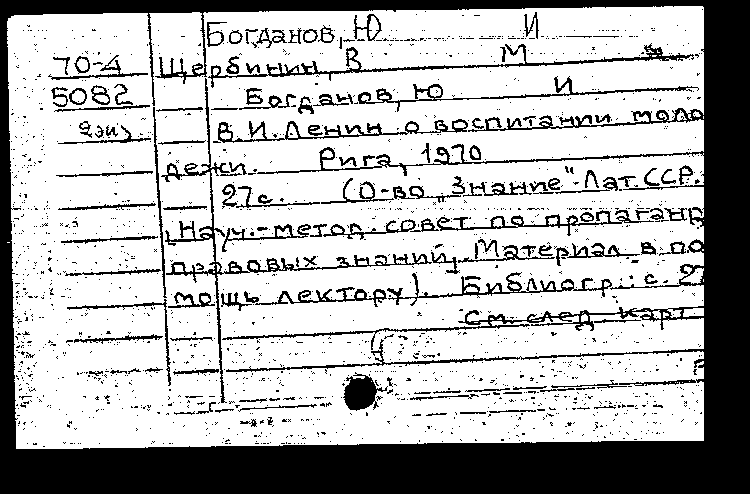 Богданов, Ю И
70-4 Щербинин, В М
5082 Богданов, Ю И
2 экз В. И. Ленин о воспитании моло
дежи. Рига, 1970
27 с. (О-во „Знание" Лат. ССР.
Науч.-метод. совет по пропаганд
правовых знаний, Материал в по
мощь лектору). Библиогр.: с. 27
См. след. карт